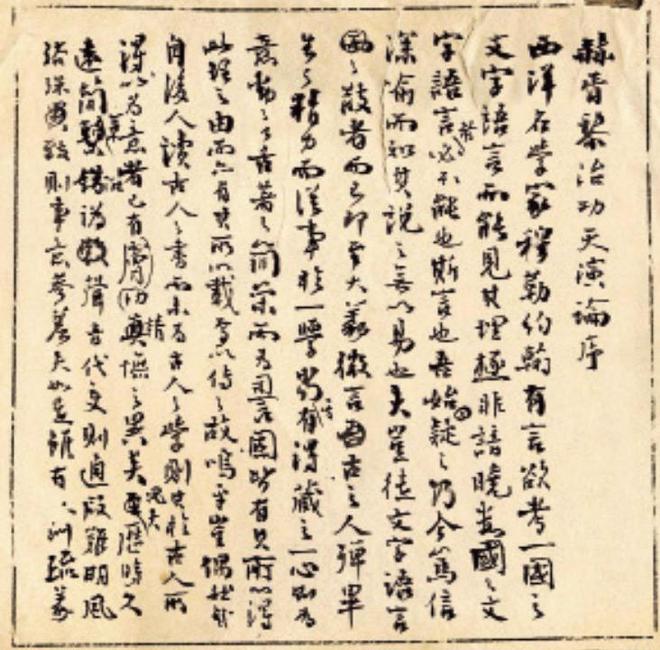 赫胥黎治功天演論序
西洋名學家穆勒約翰有言欲考一國之
文字語言而能見其理極非諳曉數國之文
字語言必不能也斯言也吾始疑之乃今篤信
深喻而知其說之無以易也夫豈徒文字語言
之散者而已即至大義微言古之人殫畢
生之精力而從事於一學當有得藏之一心則為
意動之口舌著之簡策而為言固皆有其所以得
此理之由而亦有其所以載焉以傳之故嗚乎豈偶然哉
自後人讀古人之書而未為古人之學則其於古人所
得以為意者已有膚切精憮之異矣況夫歷時久
遠簡錯譌聲音代變則通叚難明風
俗殊致則事言參差夫如是雖有訓疏義